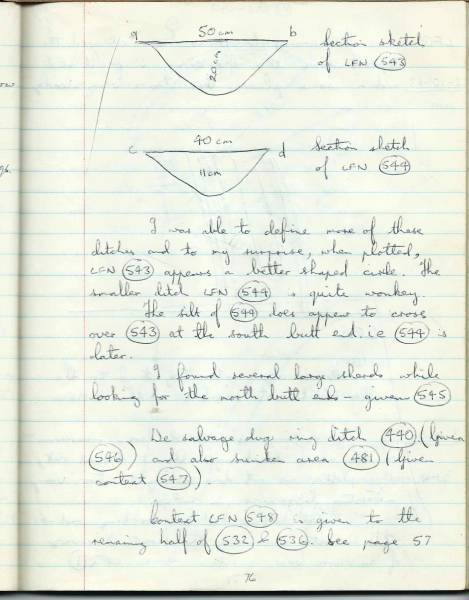 a 50cm b
20cm
Section sketch
of LFN 543
c 40cm d
11cm
Section sketch
of LFN 544
I was able to define more of these
ditches and to my surprise, when plotted,
LFN 543 appears a better shaped circle. The
smaller ditch LFN 544 is quite wonkey.
The silt of 544 does appear to cross
over 543 at the south butt end. i.e 544 is
later.
I found several large sherds while
looking for the north butt ends - given 545
We salvage dug ring ditch 440. (given
546) and also sunken area 481 (given
context 547).
Context LFN 548 is given to the
remaing half of 532 & 536. See page 57
76